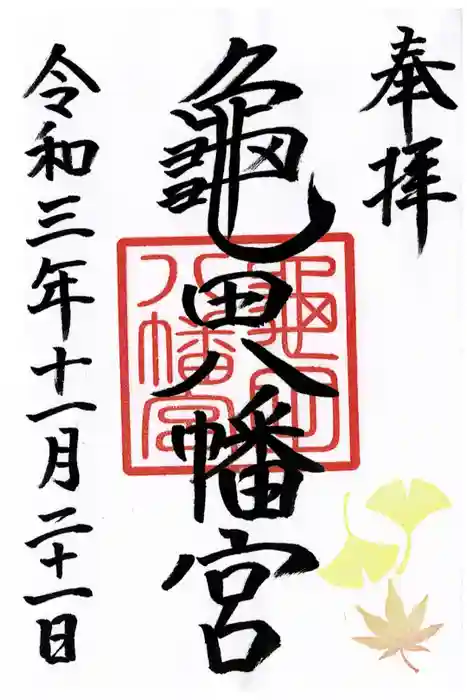 奉拝
亀田八幡宮
龜田八幡宮
令和三年十一月二十一日